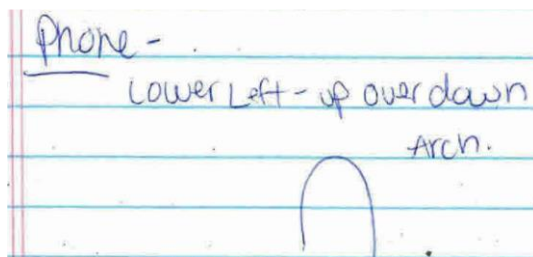 Phone -
Lower Left - up over down
Arch.